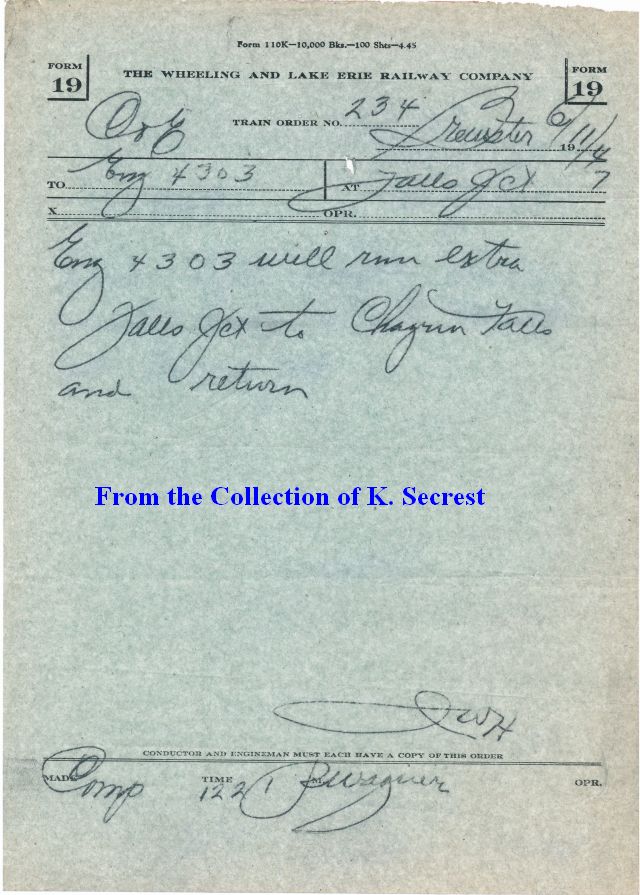 Form 110K—10,000 Bks.—100 Shts—4.45
FORM 19
FORM 19
THE WHEELING AND LAKE ERIE RAILWAY COMPANY
TRAIN ORDER NO. 234 Brewster 6/11/47
C&E
19
TO Eng 4303 AT Falls Jct
X OPR.
Eng 4303 will run extra
Falls Jct to Chagrin Falls
and return
From the Collection of K. Secrest
JWH
CONDUCTOR AND ENGINEMAN MUST EACH HAVE A COPY OF THIS ORDER
MADE Comp TIME 1221 M Wagner OPR.